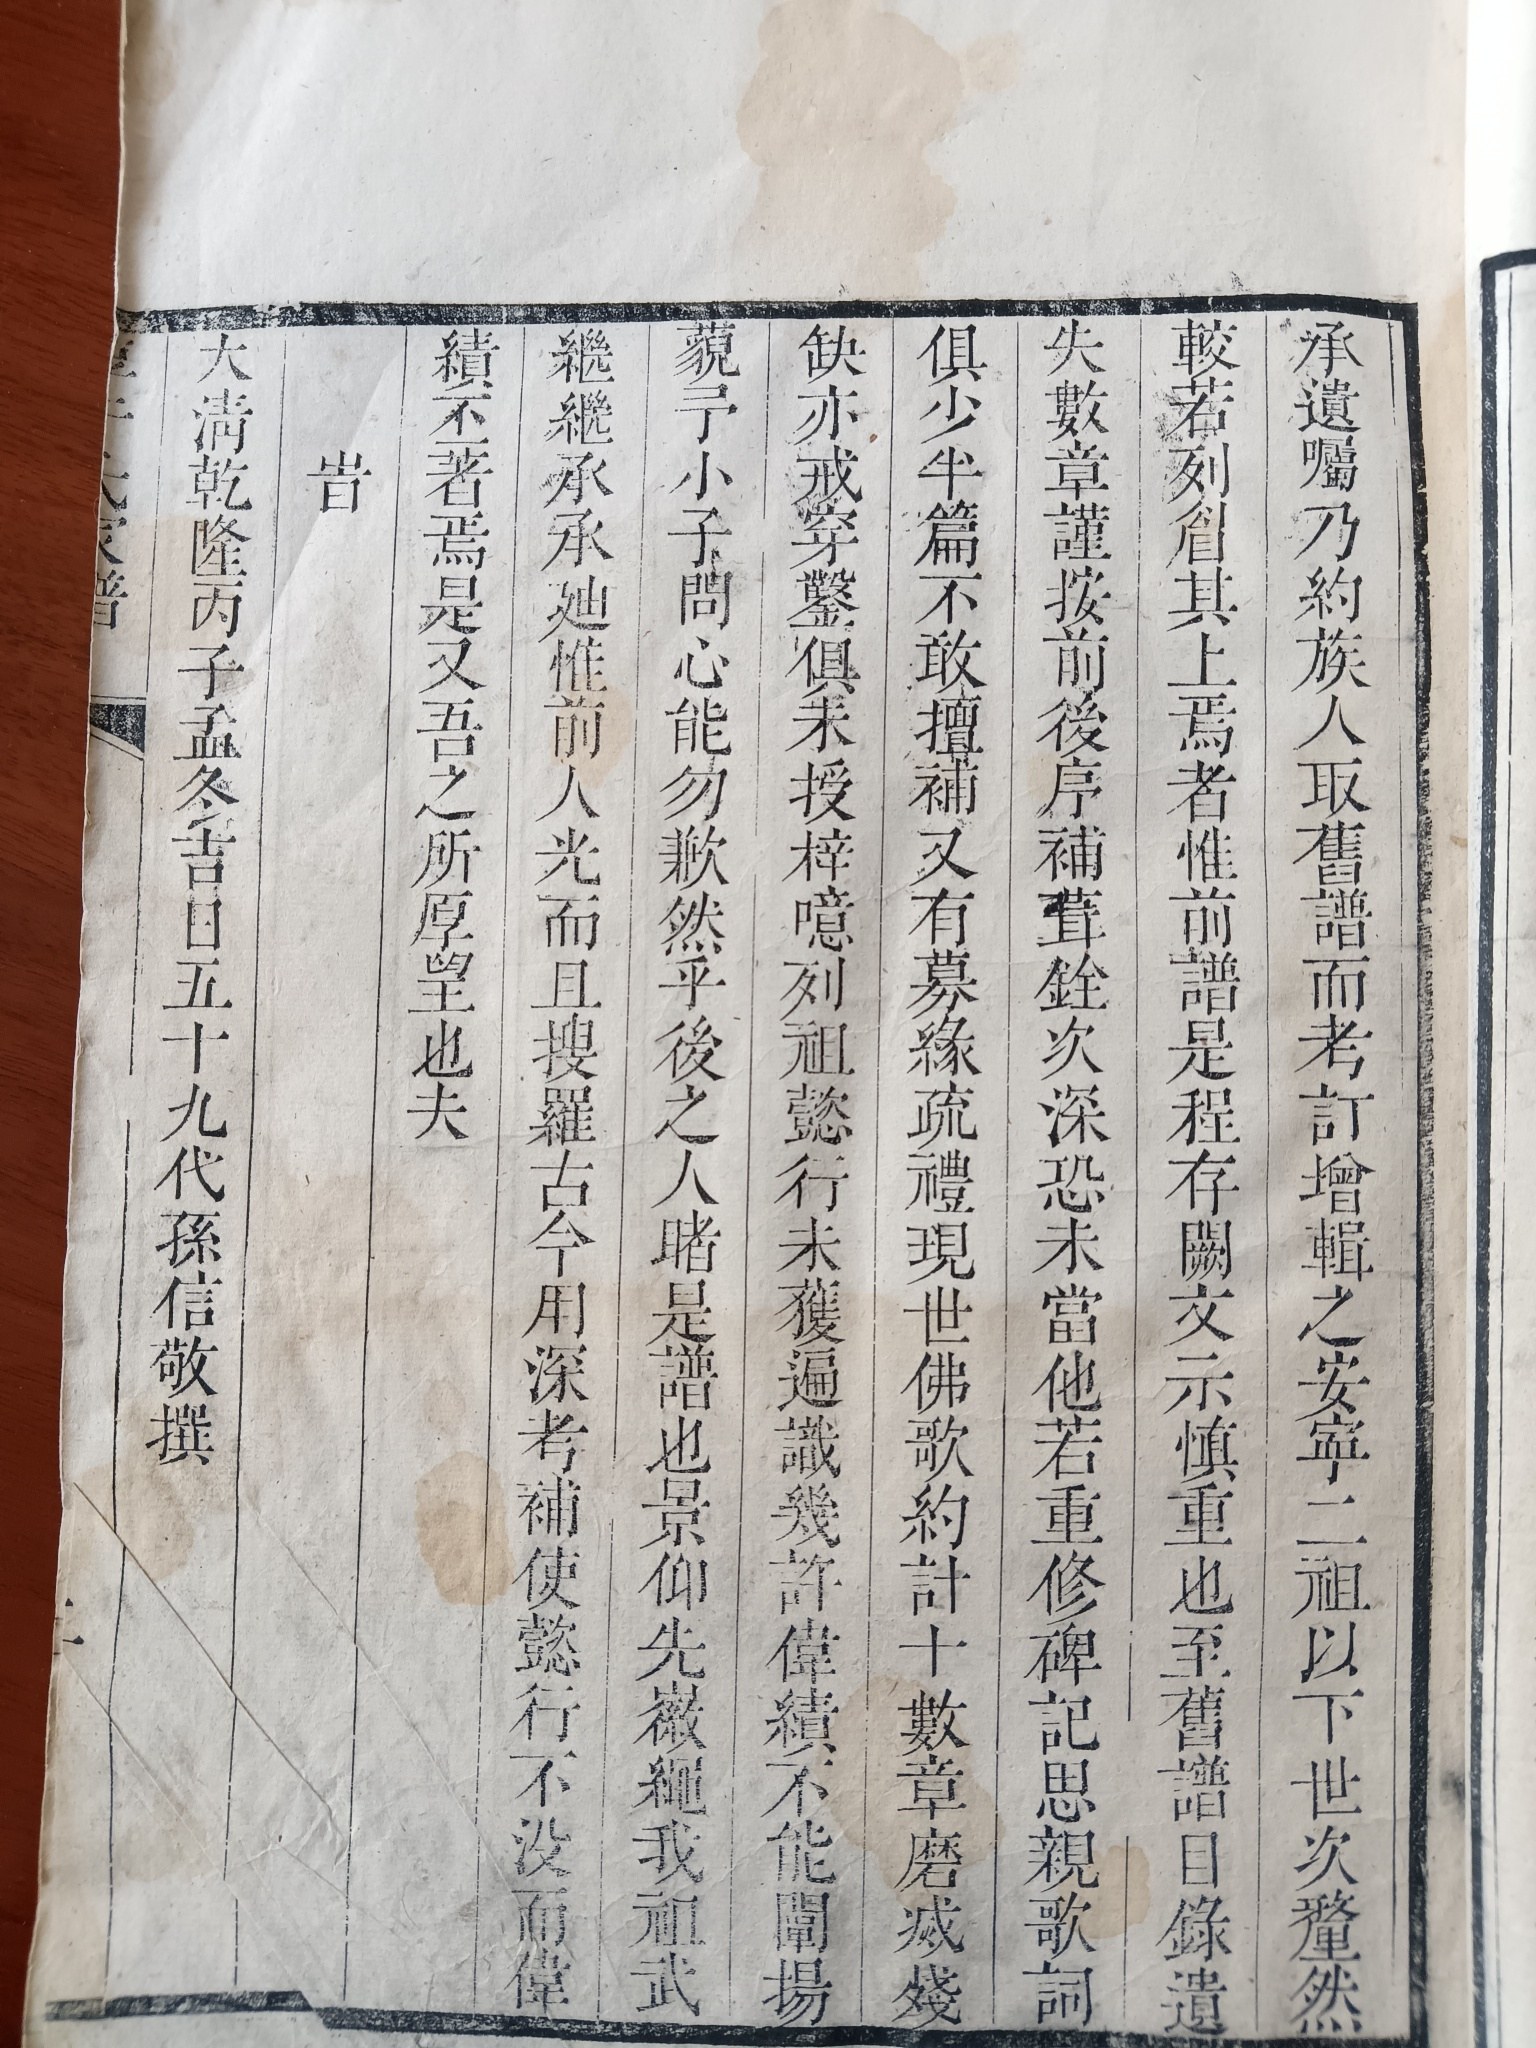 承遺囑乃約族人取舊譜而考訂增輯之安寧二祖以下世次釐然
較若列眉其上焉者惟前譜是程存闕文示慎重也至舊譜目錄遺
失數章謹按前後序補葺銓次深恐未當他若重修碑記思親歌詞
俱少半篇不敢擅補又有募緣疏禮現世佛歌約計十數章磨滅殘
缺亦戒穿鑿俱未授梓噫列祖懿行未獲遍識幾許偉績不能闡揚
藐予小子問心能勿歉然乎後之人睹是譜也景仰先徽繩我祖武
繼繼承承迪惟前人光而且搜羅古今用深考補使懿行不沒而偉
績丕著焉是又吾之所厚望也夫
旹
大淸乾隆丙子孟冬吉日五十九代孫信敬撰
氏家譜